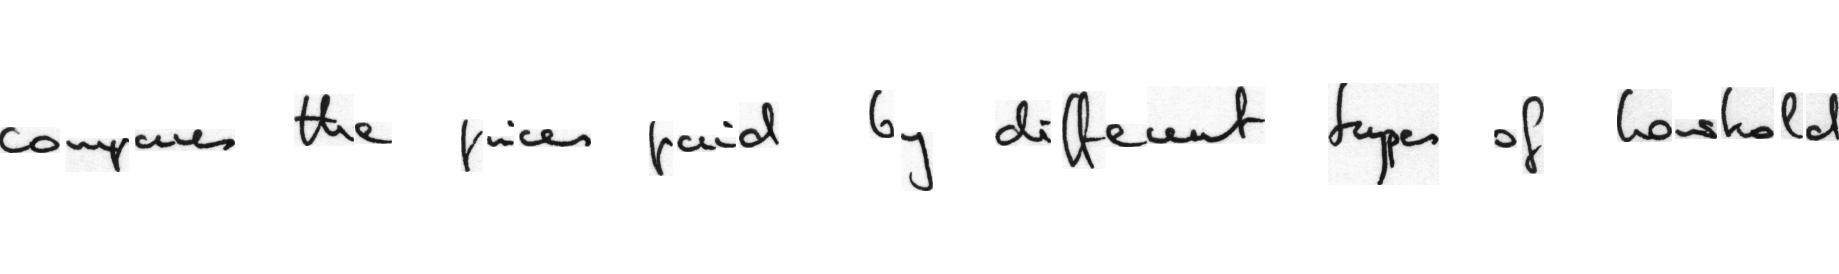 compares the prices paid by different types of household